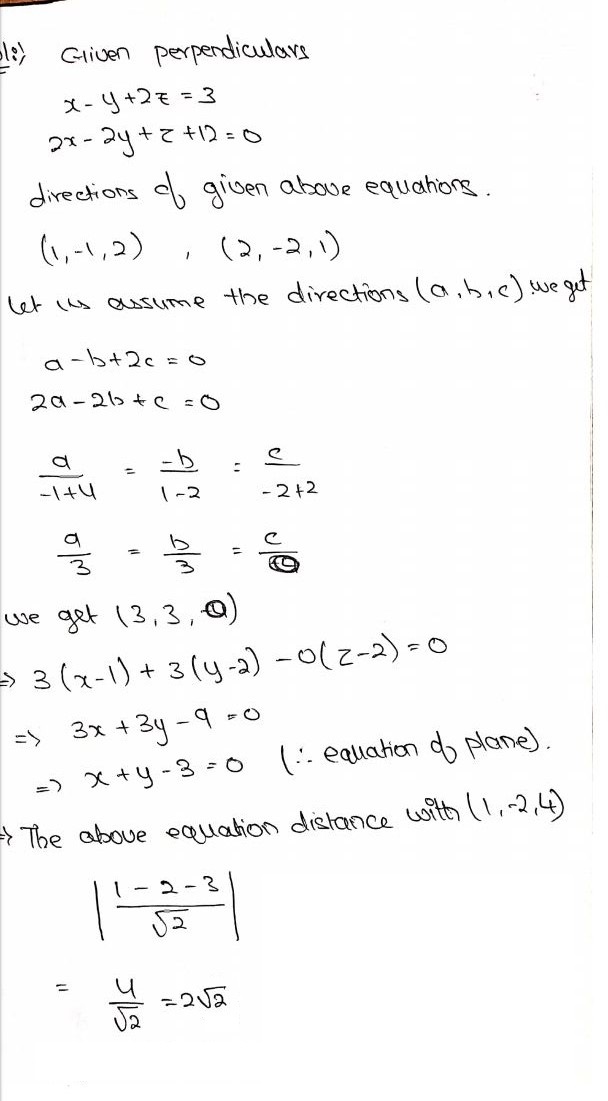 Given perpendiculars
x - y + 2z = 3
2x - 2y + z + 12 = 0
directions of given above equations.
(1, -1, 2) , (2, -2, 1)
let us assume the directions (a, b, c) we get
a - b + 2c = 0
2a - 2b + c = 0
a/(-1+4) = -b/(1-2) = c/(-2+2)
a/3 = b/3 = c/0
we get (3, 3, 0)
⇒ 3(x-1) + 3(y-2) - 0(z-2) = 0
⇒ 3x + 3y - 9 = 0
⇒ x + y - 3 = 0 (∴ equation of plane).
⇒ The above equation distance with (1, -2, 4)
|(1 - 2 - 3)/√2|
= 4/√2 = 2√2